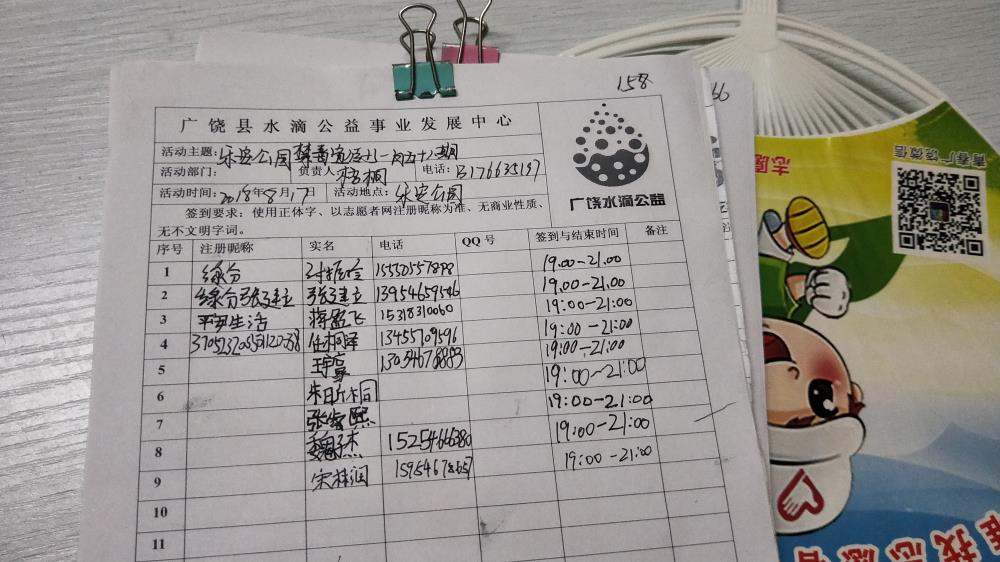 158
66
广饶县水滴公益事业发展中心
活动主题:乐安公园禁毒宣传
活动部门: 负责人 梧桐 电话:13176635197
活动时间:2018年8月17日 活动地点:乐安公园
广饶水滴公益
签到要求:使用正体字、以志愿者网注册昵称为准、无商业性质、
无不文明字词。
序号 注册昵称 实名 电话 QQ号 签到与结束时间 备注
1 缘分 15550557898 19:00-21:00
2 缘分张建立 张建立 13954659546 19:00-21:00
3 平安生活 蒋 飞 15318310060 19:00-21:00
4 任桐泽 13455709596 19:00-21:00
5 13054678883 19:00-21:00
6 19:00-21:00
7 19:00-21:00
8 魏子杰 1525466380 19:00-21:00
9 宋林润 15954678657 19:00-21:00
10
11
青春广饶微信
志愿
我志愿者